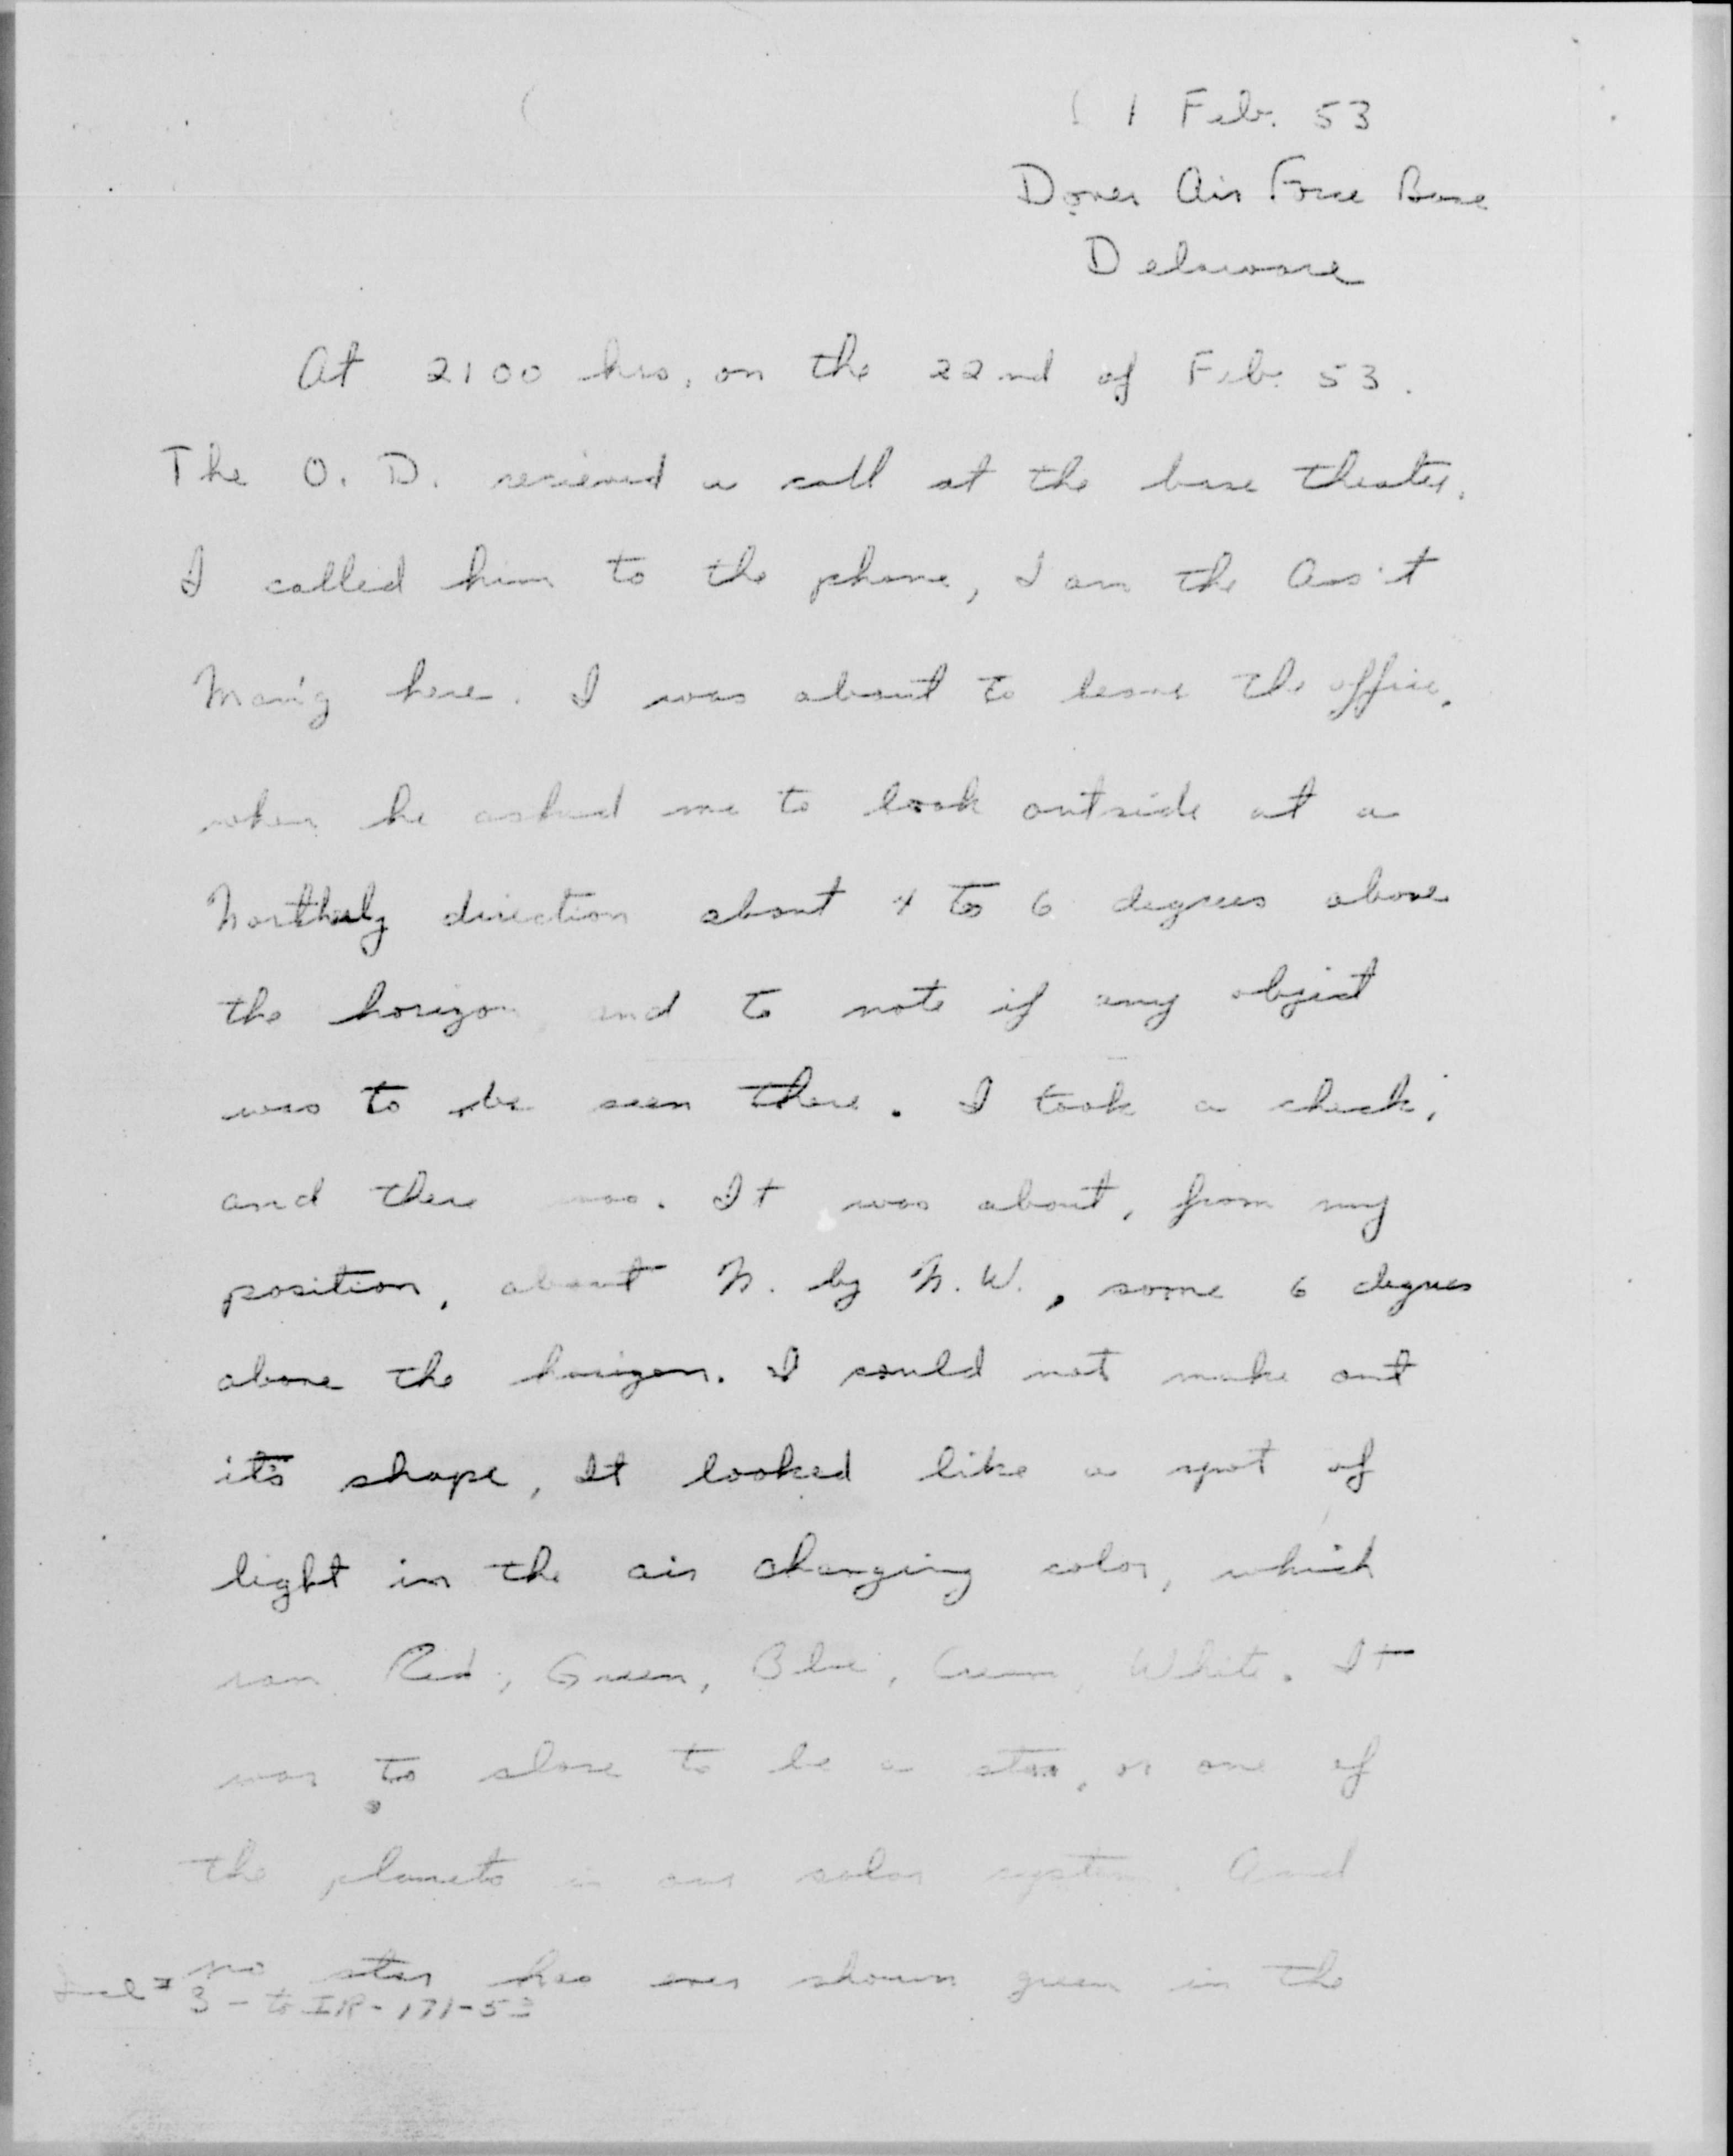 1 Feb. 53
Dover Air Force Base
Delaware
At 2100 hrs, on the 22nd of Feb. 53.
The O. D. recieved a call at the base theater.
I called him to the phone, I am the Ass't
Man'g here. I was about to leave the office,
when he asked me to look outside at a
Northerly direction about 4 to 6 degrees above
the horizon, and to note if any object
was to be seen there. I took a check,
and there was. It was about, from my
position, about N. by N.W., some 6 degrees
above the horizon. I could not make out
it's shape, It looked like a spot of
light in the air changing color, which
ran Red, Green, Blue, Cream, White. It
was to close to be a star, or one of
the planets in our solar system. And
no star has ever shown green in the
Incl # 3 - to IR-171-53